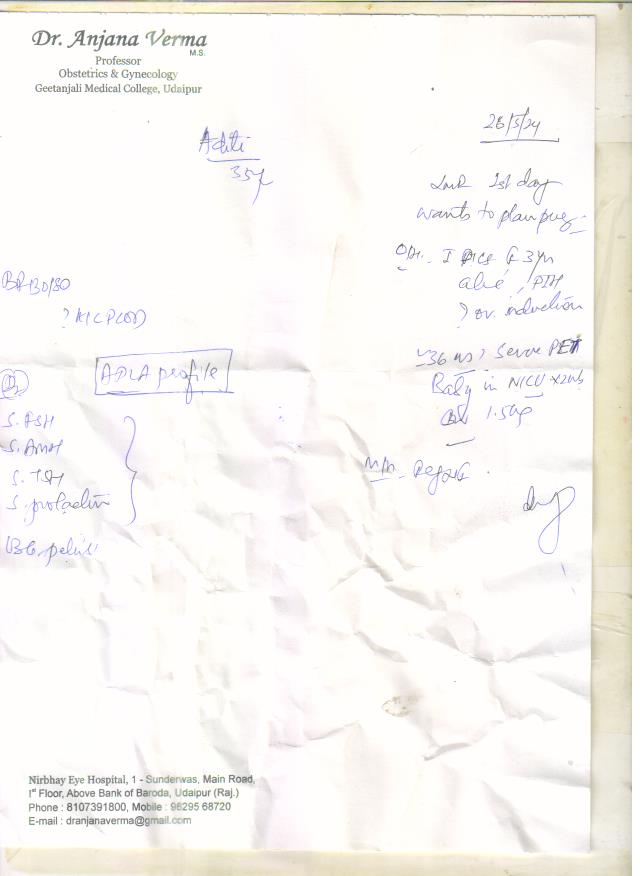 Dr. Anjana Verma
M.S.
Professor
Obstetrics & Gynecology
Geetanjali Medical College, Udaipur
28/5/24
Aditi
35y
LMP 1st day
wants to plan preg
I LSCS 3yr
PIH
? ov. induction
BP 130/80
? K/C PCOD
~36 wks ? Severe PET
Baby in NICU x 2wks
1.5kg
APLA profile
S. FSH
S. AMH
S. TSH
S. prolactin
M/H - Regular
USG. pelvis
Nirbhay Eye Hospital, 1 - Sunderwas, Main Road,
Ist Floor, Above Bank of Baroda, Udaipur (Raj.)
Phone : 8107391800, Mobile : 98295 68720
E-mail : dranjanaverma@gmail.com